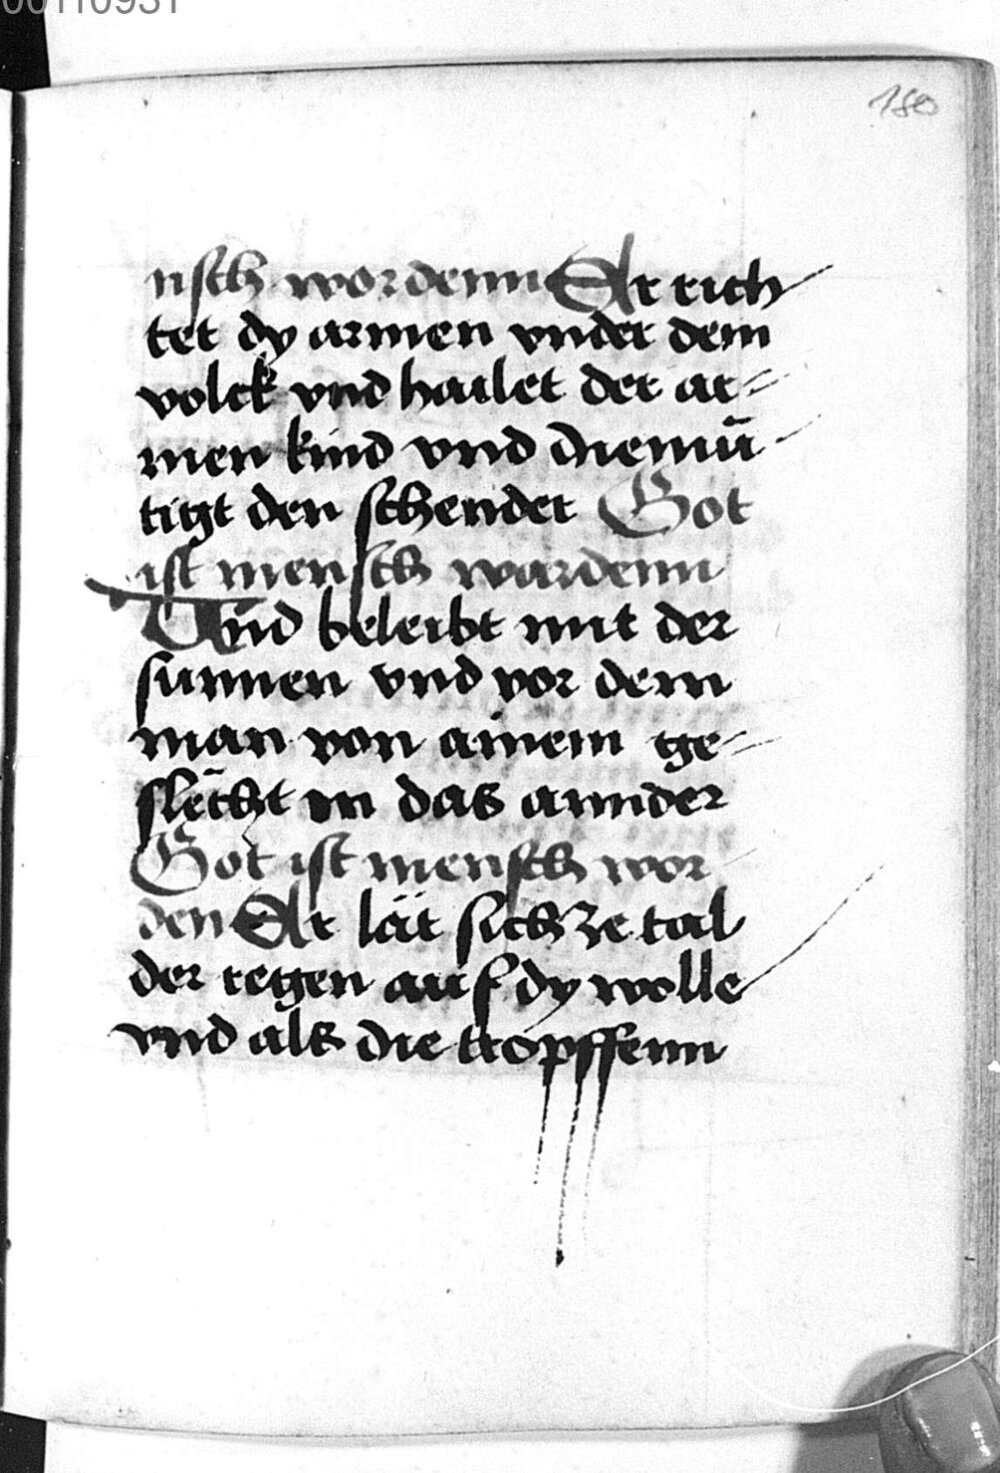 00110931
180
nsch wordenn Er rich
tet dy armen vnder dem
volck vnd hailet der ar=
men kind vnd diemü-
tigt den schender Got
ist mensch wardenn
Vnd beleibt mit der
sunnen vnd vor dem
man von ainem ge=
slächt in das annder
Got ist mensch wor
den Er lät sich ze tal
der regen auf dy wolle
vnd als die tropffenn